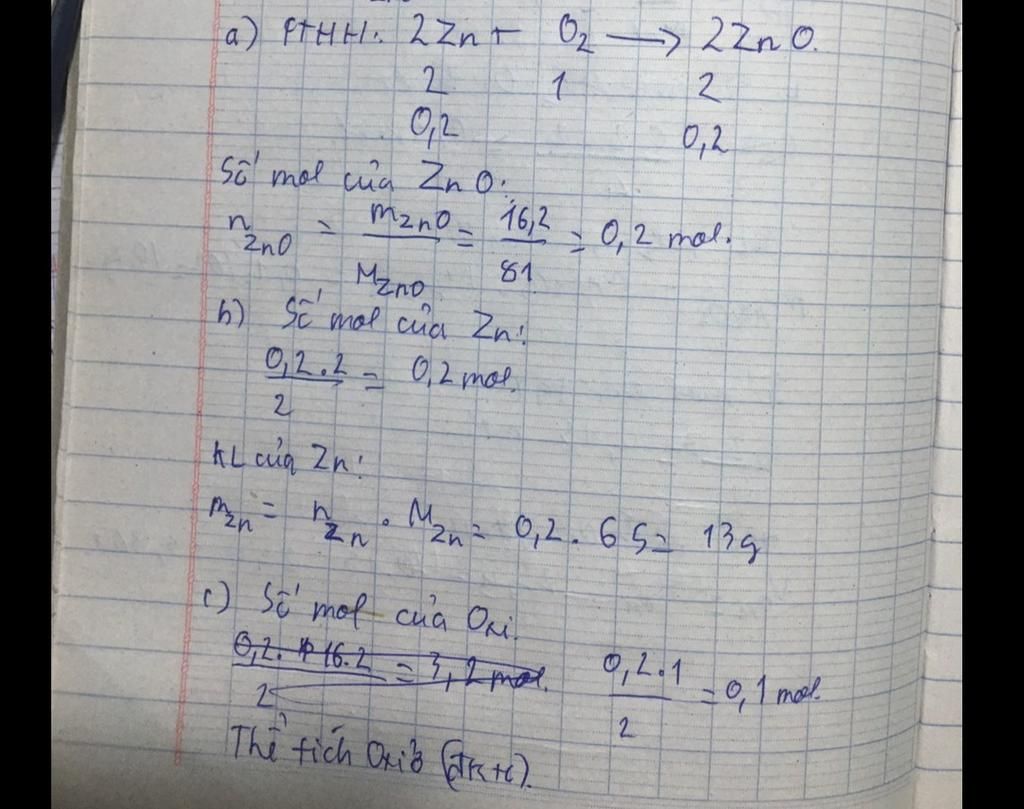 a) PTHH: 2Zn + O₂ → 2ZnO.
2 1 2
0,2 0,2
Số mol của ZnO:
n ZnO = m ZnO / M ZnO = 16,2 / 81 = 0,2 mol.
b) Số mol của Zn:
0,2.2 / 2 = 0,2 mol.
KL của Zn:
m Zn = n Zn . M Zn = 0,2 . 65 = 13g
c) Số mol của Oxi.
0,2. 16.2 / 2 = 3,2 mol. 0,2.1 / 2 = 0,1 mol.
Thể tích Oxi (đktc).